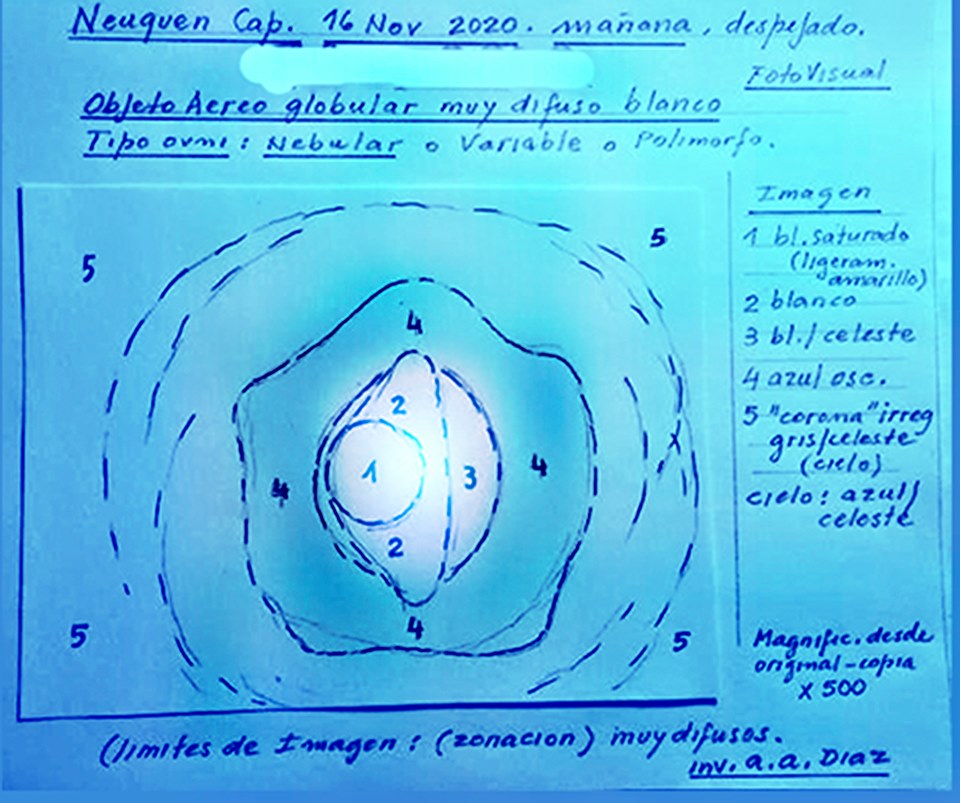 Neuquen Cap. 16 Nov 2020. mañana, despejado.
FotoVisual
Objeto Aereo globular muy difuso blanco
Tipo ovni: Nebular o Variable o Polimorfo.
Imagen
1 bl. saturado
(ligeram.
amarillo)
2 blanco
3 bl./celeste
4 azul osc.
5 "corona" irreg
gris/celeste
(cielo)
cielo: azul/
celeste
5
5
4
2
1
3
4
4
2
4
5
5
Magnific. desde
original-copia
x 500
(limites de Imagen: (zonacion) muy difusos.
inv. a.a. Diaz